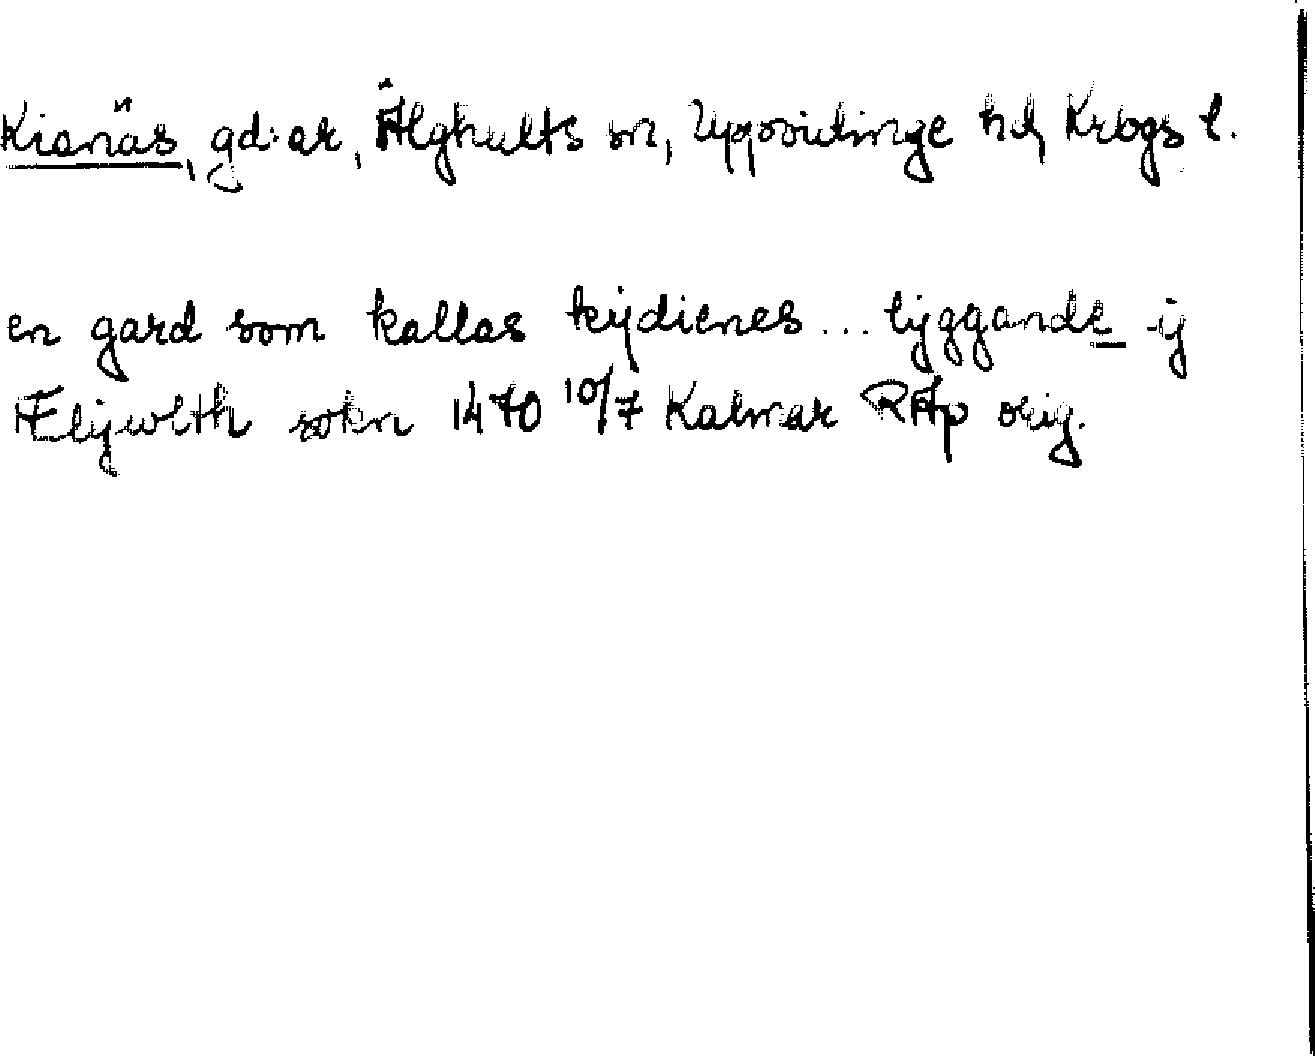 Kianäs, gd:ar, Älghults sn, Uppvidinge hd, Krbgs l.
en gard som kallas kijdienes... lijggande ij
Elijwlth sokn 1470 10/7 Kalmar RAp orig.